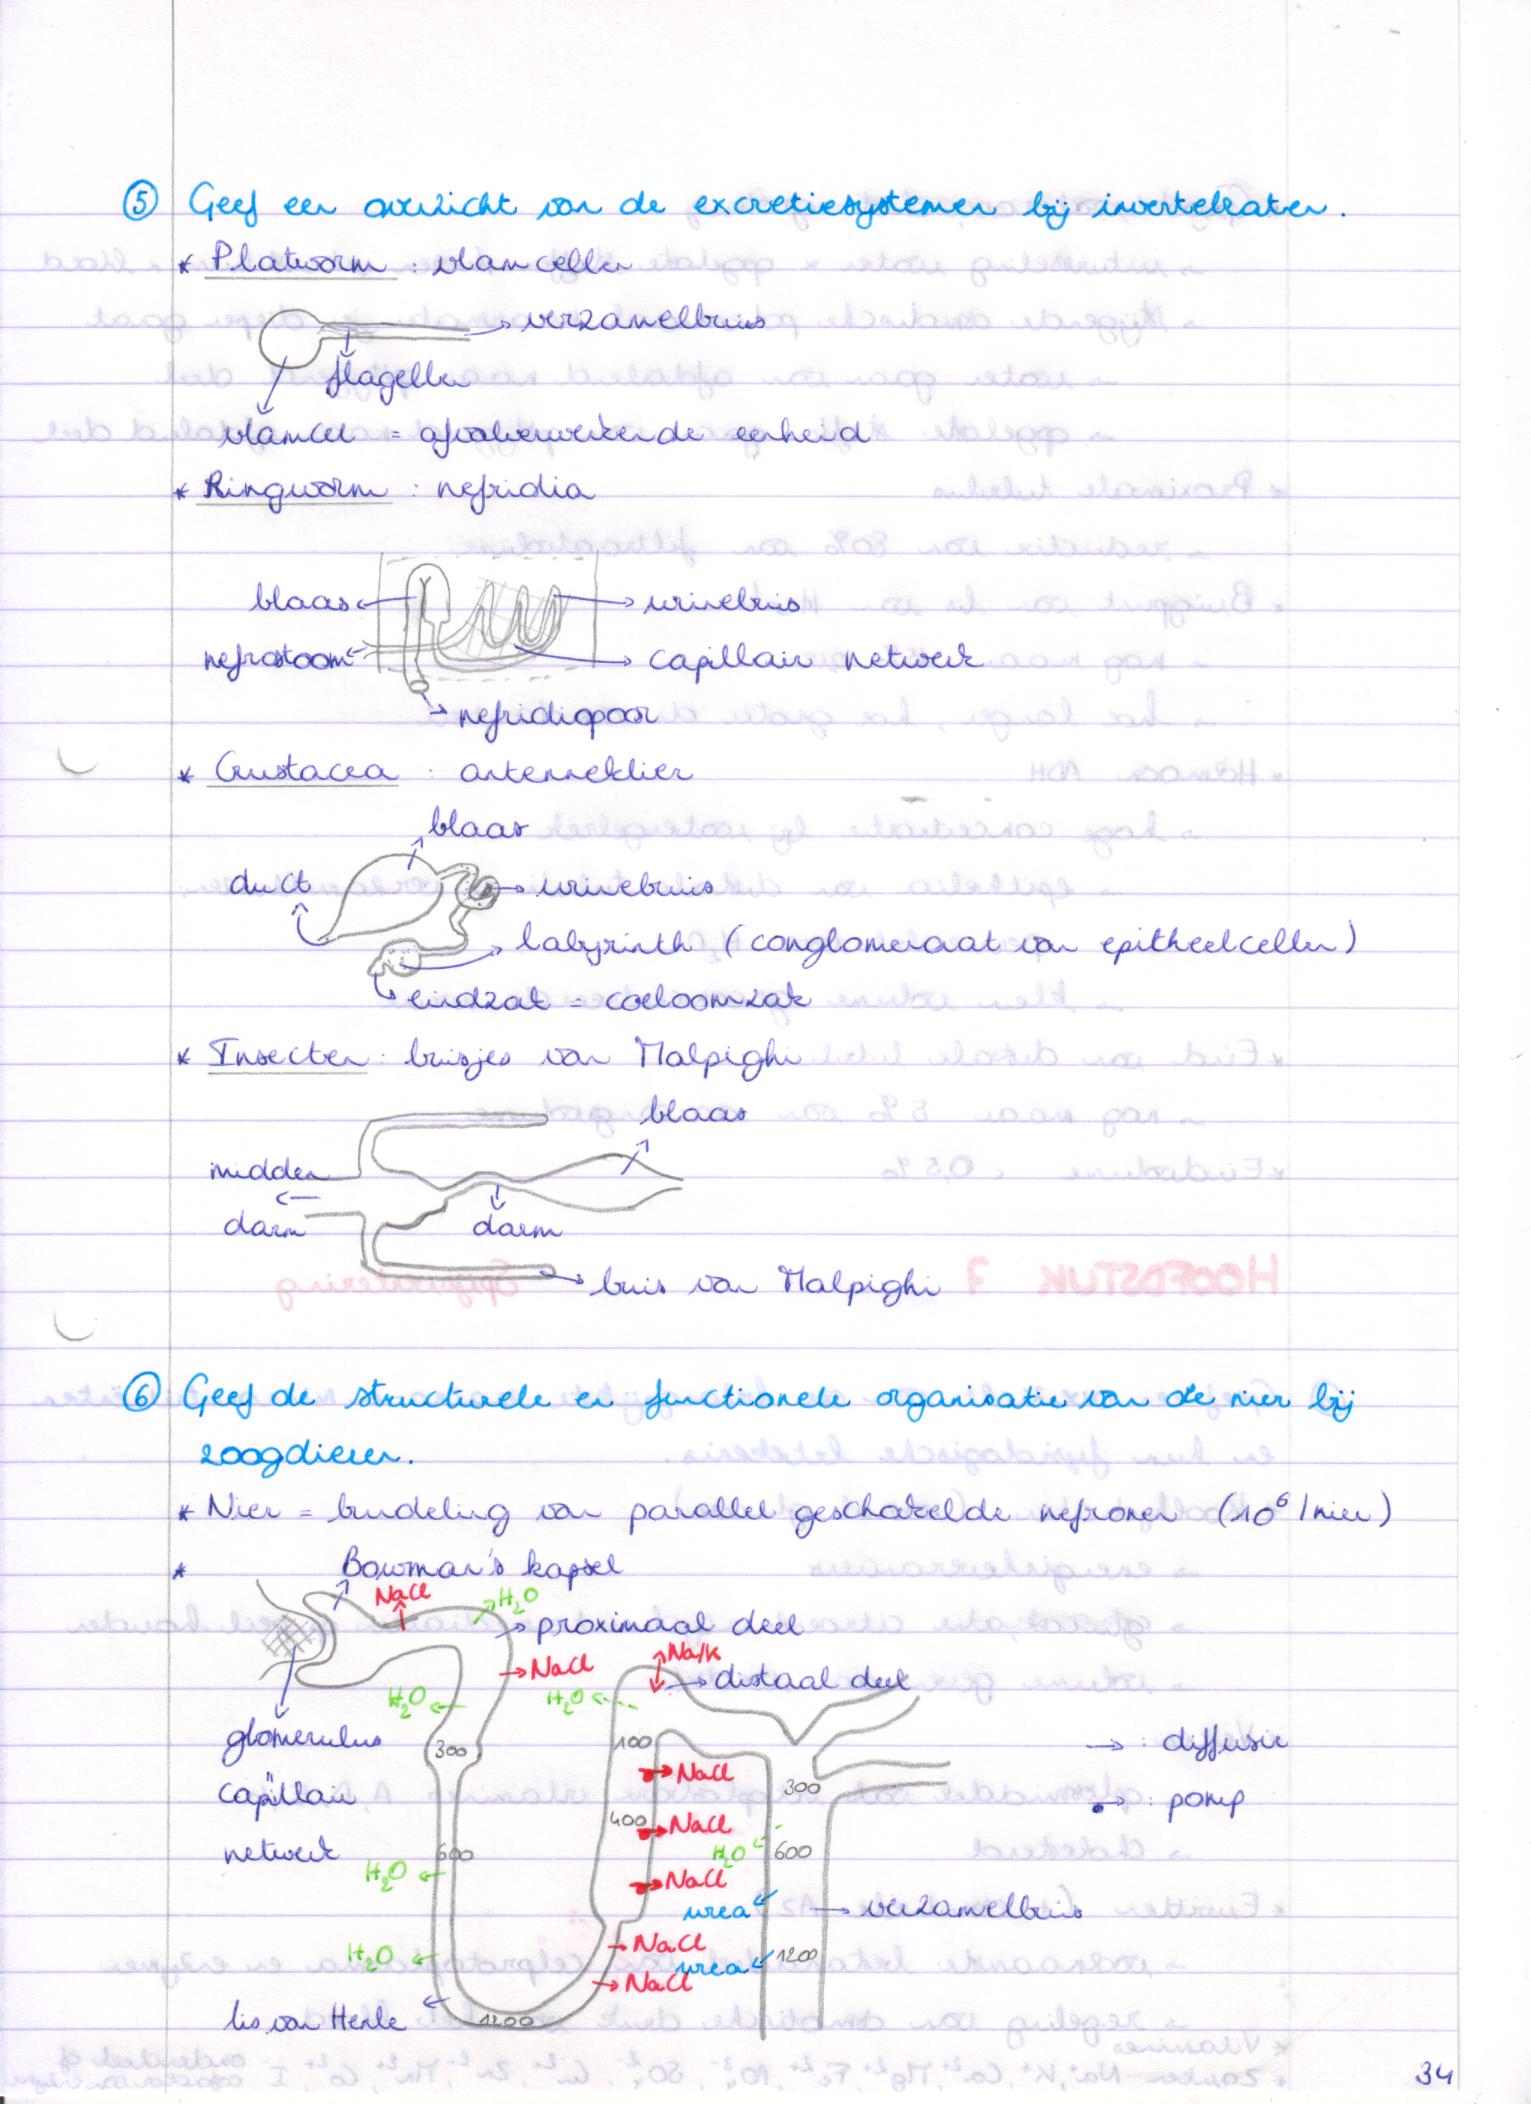 ⑤ Geef een overzicht van de excretiesystemen bij invertebraten.
* Platworm : vlamcellen
verzamelbuis
flagellen
vlamcel = afvalverwerkende eenheid
* Ringworm : nefridia
blaas
urinebuis
nefrostoom
capillair netwerk
nefridiopoor
* Crustacea : antenneklier
blaas
duct
urinebuis
labyrinth (conglomeraat van epitheelcellen)
eindzak = coeloomzak
* Insecten : buisjes van Malpighi
blaas
midden
darm
darm
buis van Malpighi
⑥ Geef de structurele en functionele organisatie van de nier bij
zoogdieren.
* Nier = bundeling van parallel geschakelde nefronen (10⁶/nier)
* Bowman's kapsel
NaCl
H₂O
proximaal deel
NaCl
Na/K
H₂O
H₂O
distaal deel
glomerulus
300
100
: diffusie
NaCl
capillair
300
: pomp
400
NaCl
netwerk
600
H₂O
600
H₂O
NaCl
urea
verzamelbuis
NaCl
H₂O
urea
1200
NaCl
lis van Henle
1200
34